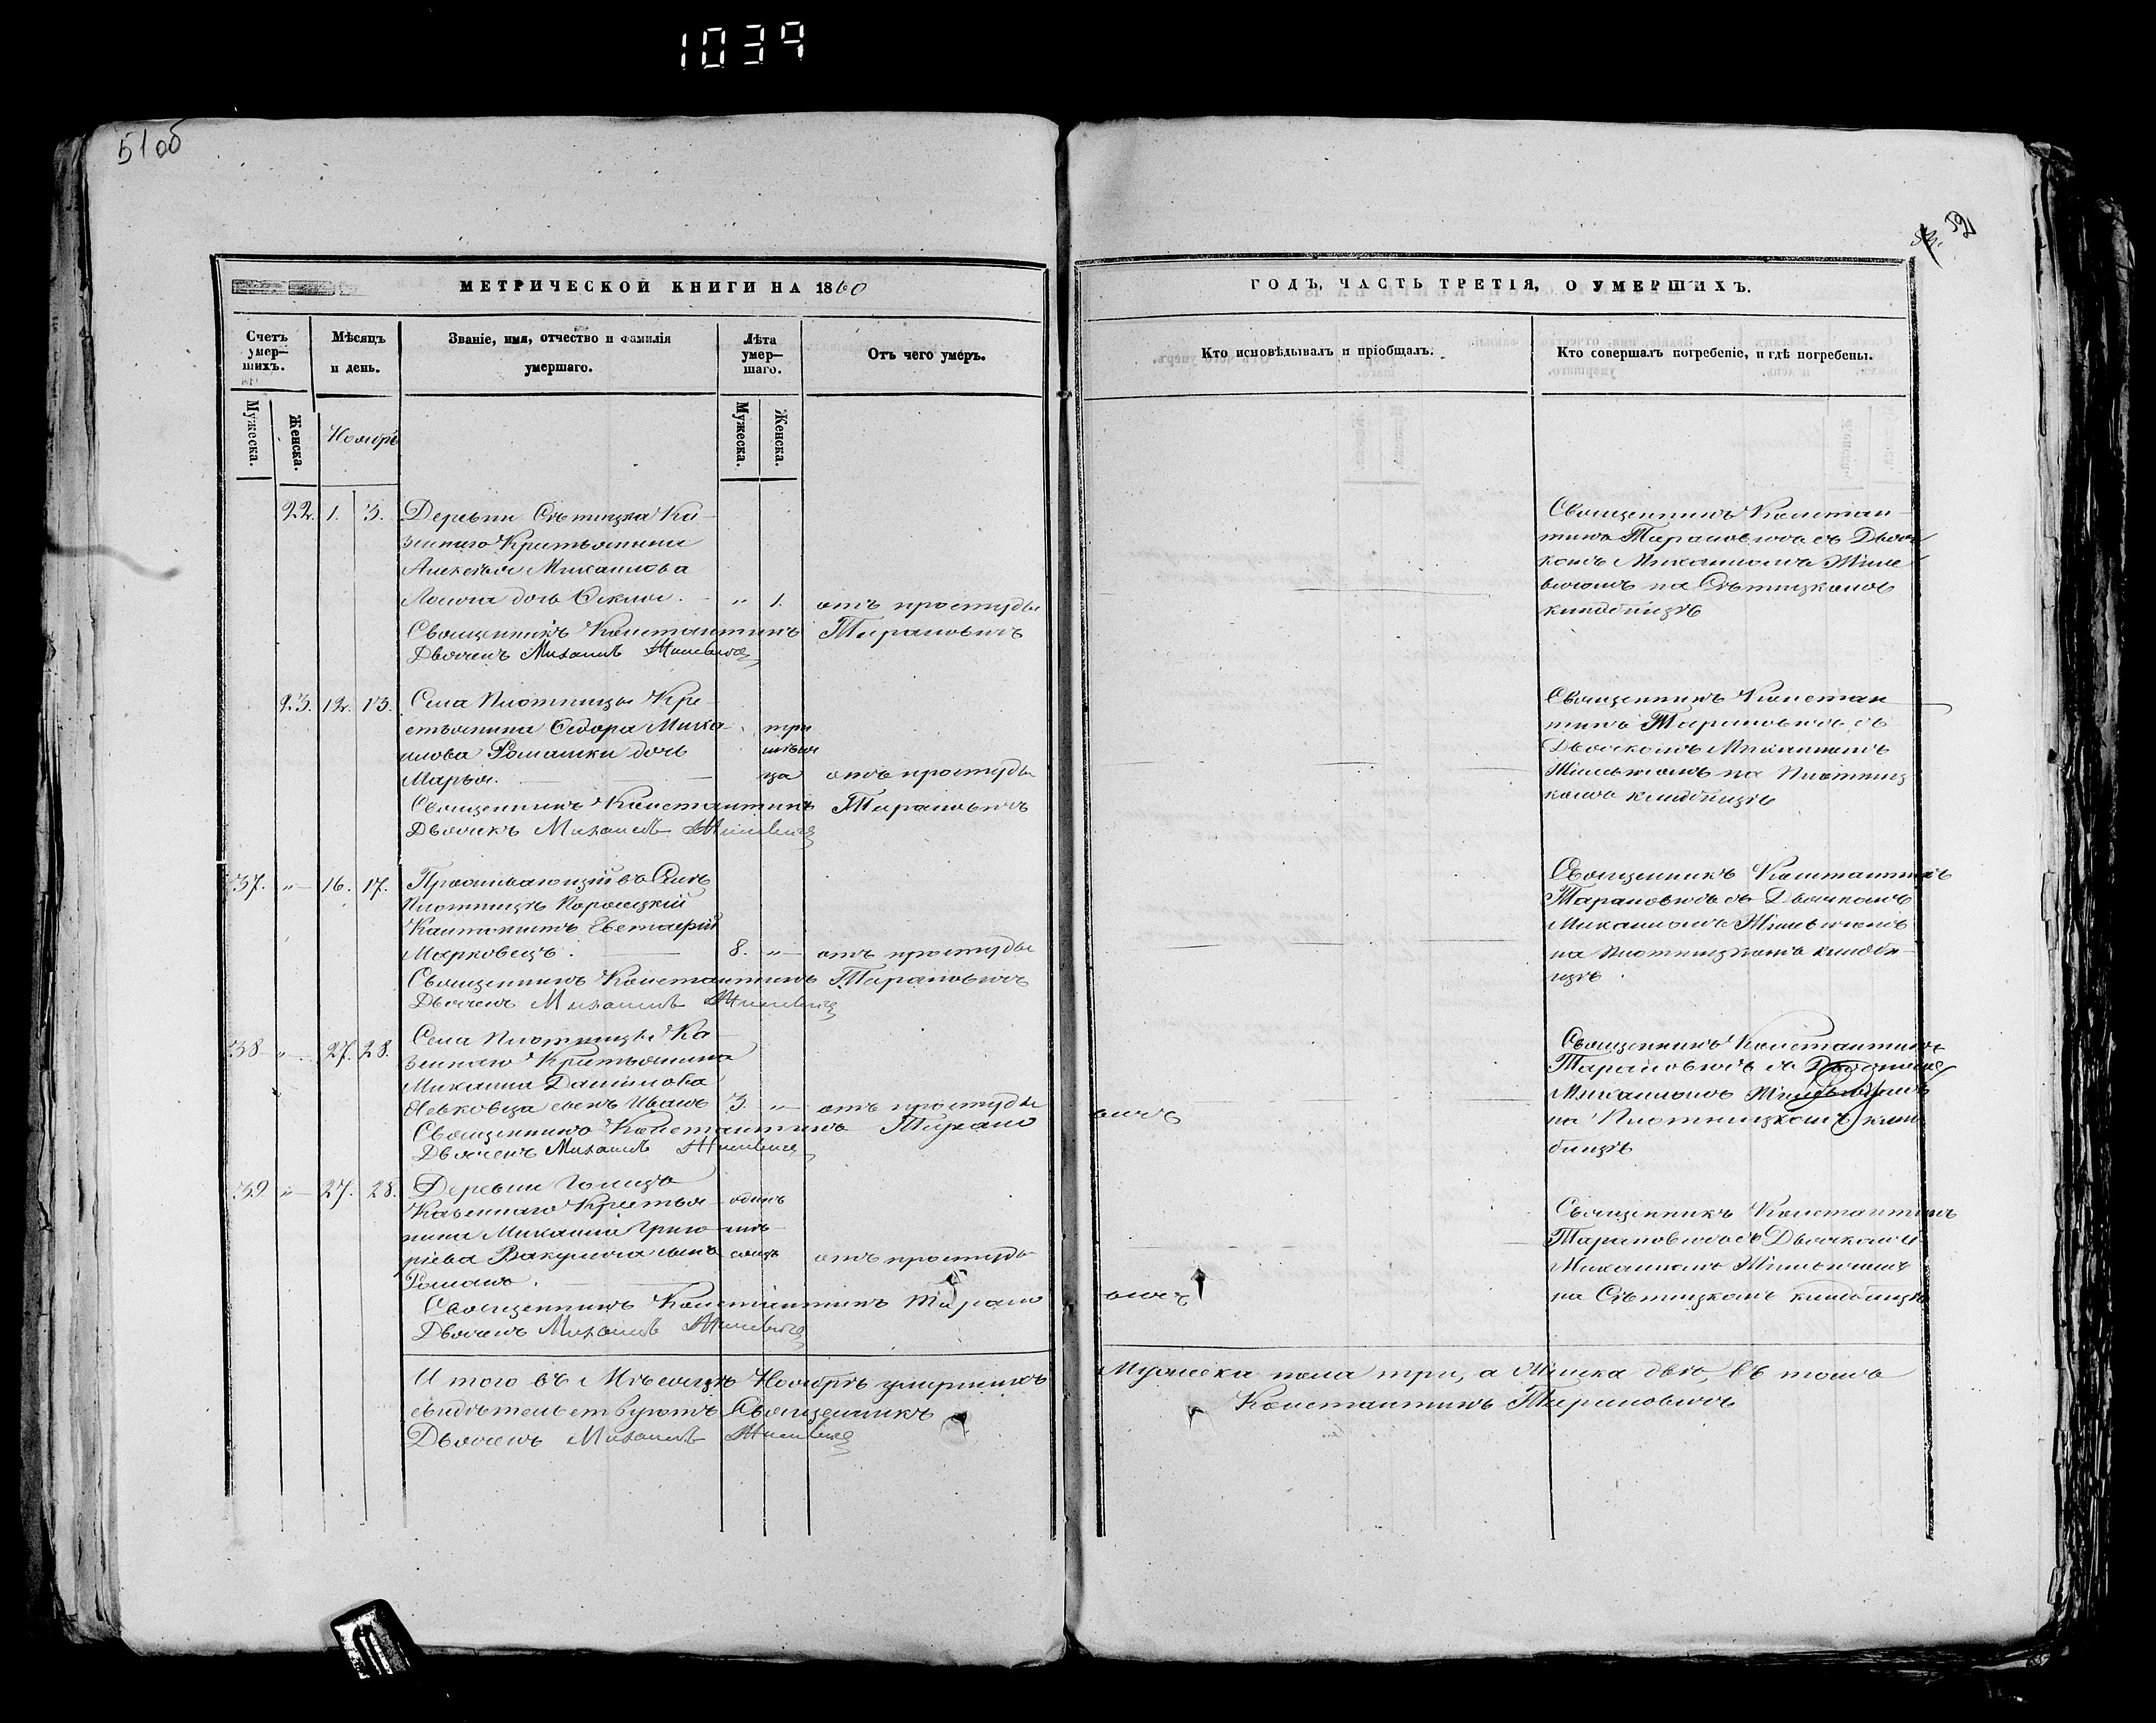 1039
51об
52
МЕТРИЧЕСКОЙ КНИГИ НА 1860
ГОДЪ, ЧАСТЬ ТРЕТІЯ, О УМЕРШИХЪ.
Счетъ умер-
шихъ.
Мѣсяцъ
и день.
Званіе, имя, отчество и фамилія
умершаго.
Лѣта
умер-
шаго.
Отъ чего умеръ.
Кто исповѣдывалъ и пріобщалъ.
Кто совершалъ погребеніе, и гдѣ погребены.
Мужеска.
Женска.
Ноябрь
Мужеска.
Женска.
22. 1. 3. Деревни Сѣтицка Ка-
зеннаго Крестьянина
Алексѣя Михайлова
дочь Ѳекла. „ 1. отъ простуды
Священникъ Константинъ Тарановичъ
Дьячекъ Михаилъ
Священникъ Констан-
тинъ Тарановичъ съ Дьяч
комъ Михаиломъ
на Сѣтицкомъ
кладбищѣ
23. 12. 13. Села Плотницы Кре-
стьянина Ѳедора Миха-
йлова Ромашки дочь
Марья.
три
мѣся
ца отъ простуды
Священникъ Константинъ Тарановичъ
Дьячекъ Михаилъ
Священникъ Констан
тинъ Тарановичъ съ
Дьячкомъ Михаиломъ
на Плотниц
комъ кладбищѣ
37. „ 16. 17. Проживающій въ Селѣ
Плотницѣ
Марковецъ. 8. „ отъ простуды
Священникъ Константинъ Тарановичъ
Дьячекъ Михаилъ
Священникъ Константинъ
Тарановичъ съ Дьячкомъ
Михаиломъ
на Плотницкомъ кладби-
щѣ.
38 „ 27. 28. Села Плотницы Ка-
зеннаго Крестьянина
Михаила Данилова
Левковца сынъ Иванъ 3. „ отъ простуды
Священникъ Константинъ Тарано
вичъ
Дьячекъ Михаилъ
Священникъ Константинъ
Тарановичъ съ
Михаиломъ
на Плотницкомъ клад
бищѣ
39 „ 27. 28. Деревни
Казеннаго Крестья-
нина Михаила Григо-
рієва Вакулича сынъ
Романъ.
одинъ
мѣ-
сяцъ отъ простуды
Священникъ Константинъ Тарано
вичъ
Дьячекъ Михаилъ
Священникъ Константинъ
Тарановичъ съ Дьячкомъ
Михаиломъ
на Сѣтицкомъ кладбищѣ
Итого въ Мѣсяцѣ Ноябрѣ умершихъ Мужеска пола три, а Женска двѣ, въ томъ
свидѣтельствуютъ Священникъ Константинъ Тарановичъ
Дьячекъ Михаилъ